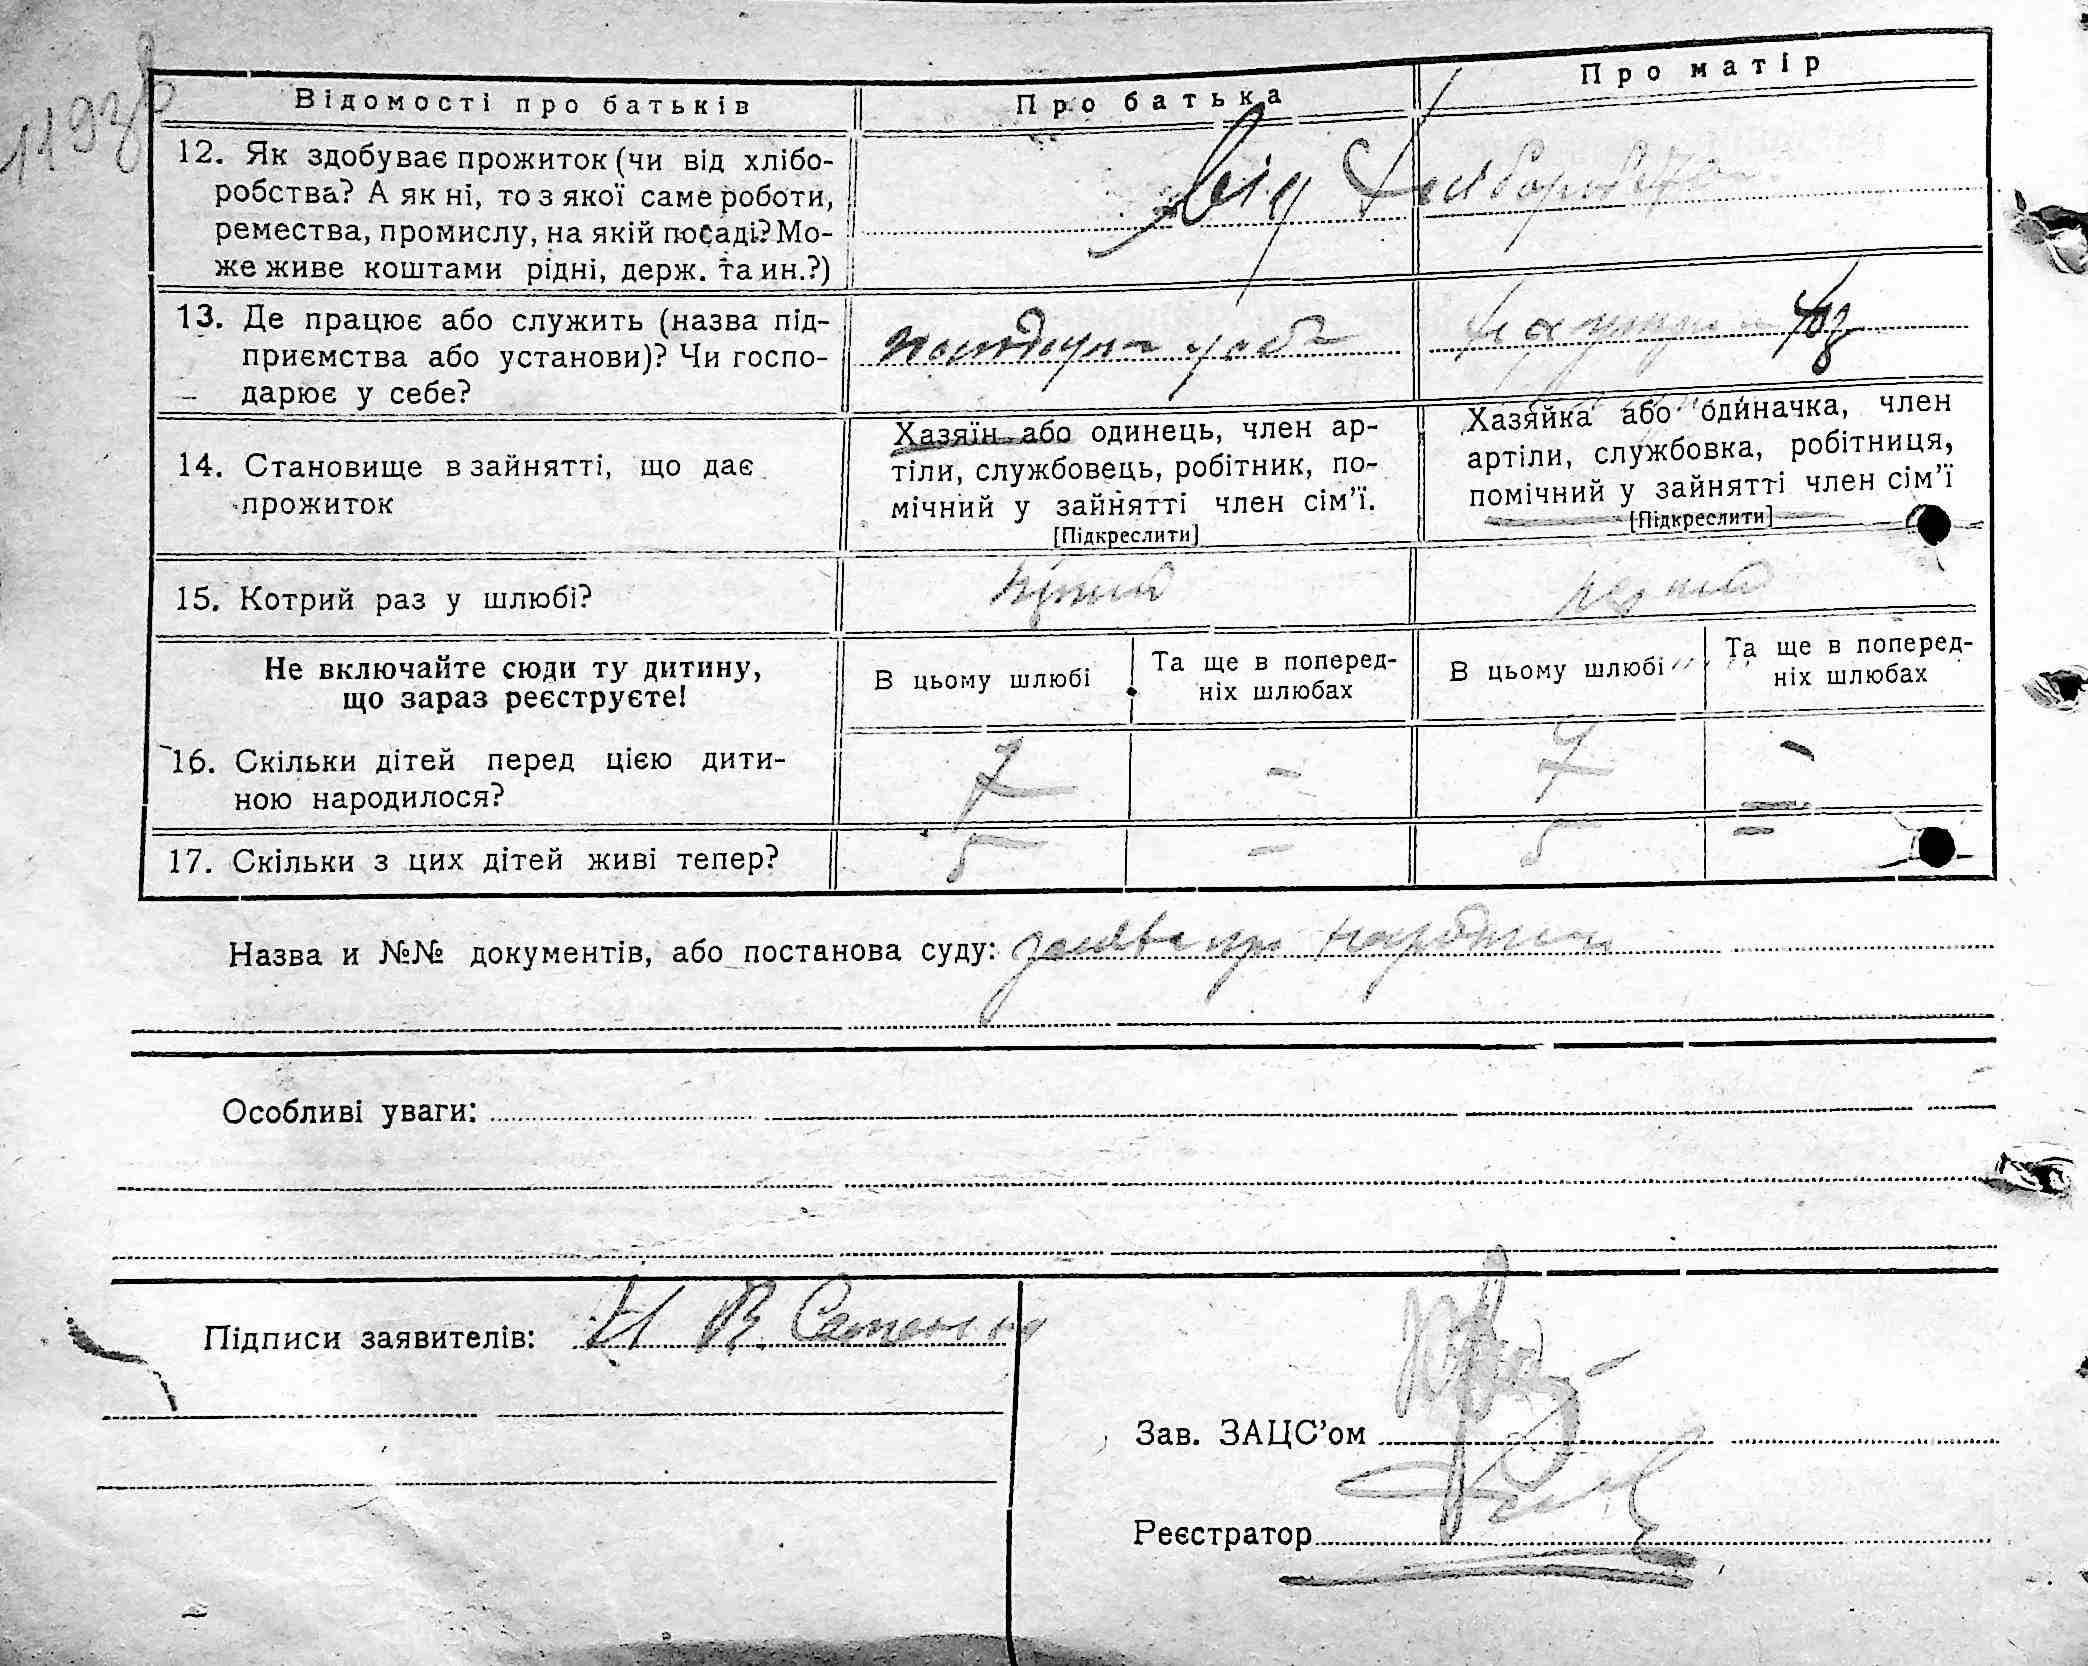 Відомості про батьків
Про батька
Про матір
12. Як здобуває прожиток (чи від хлібо-
робства? А як ні, то з якої саме роботи,
ремества, промислу, на якій посаді? Мо-
же живе коштами рідні, держ. та ин.?)
Від хліборобства
13. Де працює або служить (назва під-
приємства або установи)? Чи госпо-
дарює у себе?
14. Становище в зайнятті, що дає
прожиток
Хазяїн або одинець, член ар-
тіли, службовець, робітник, по-
мічний у зайнятті член сім'ї.
[Підкреслити]
Хазяйка або одиначка, член
артіли, службовка, робітниця,
помічний у зайнятті член сім'ї
[Підкреслити]
15. Котрий раз у шлюбі?
Не включайте сюди ту дитину,
що зараз реєструєте!
В цьому шлюбі
Та ще в поперед-
ніх шлюбах
В цьому шлюбі
Та ще в поперед-
ніх шлюбах
16. Скільки дітей перед цією дити-
ною народилося?
7 – 7 –
17. Скільки з цих дітей живі тепер?
5 – 5 –
Назва и №№ документів, або постанова суду: заява про
Особливі уваги:
Підписи заявителів:
Зав. ЗАЦС'ом
Реєстратор